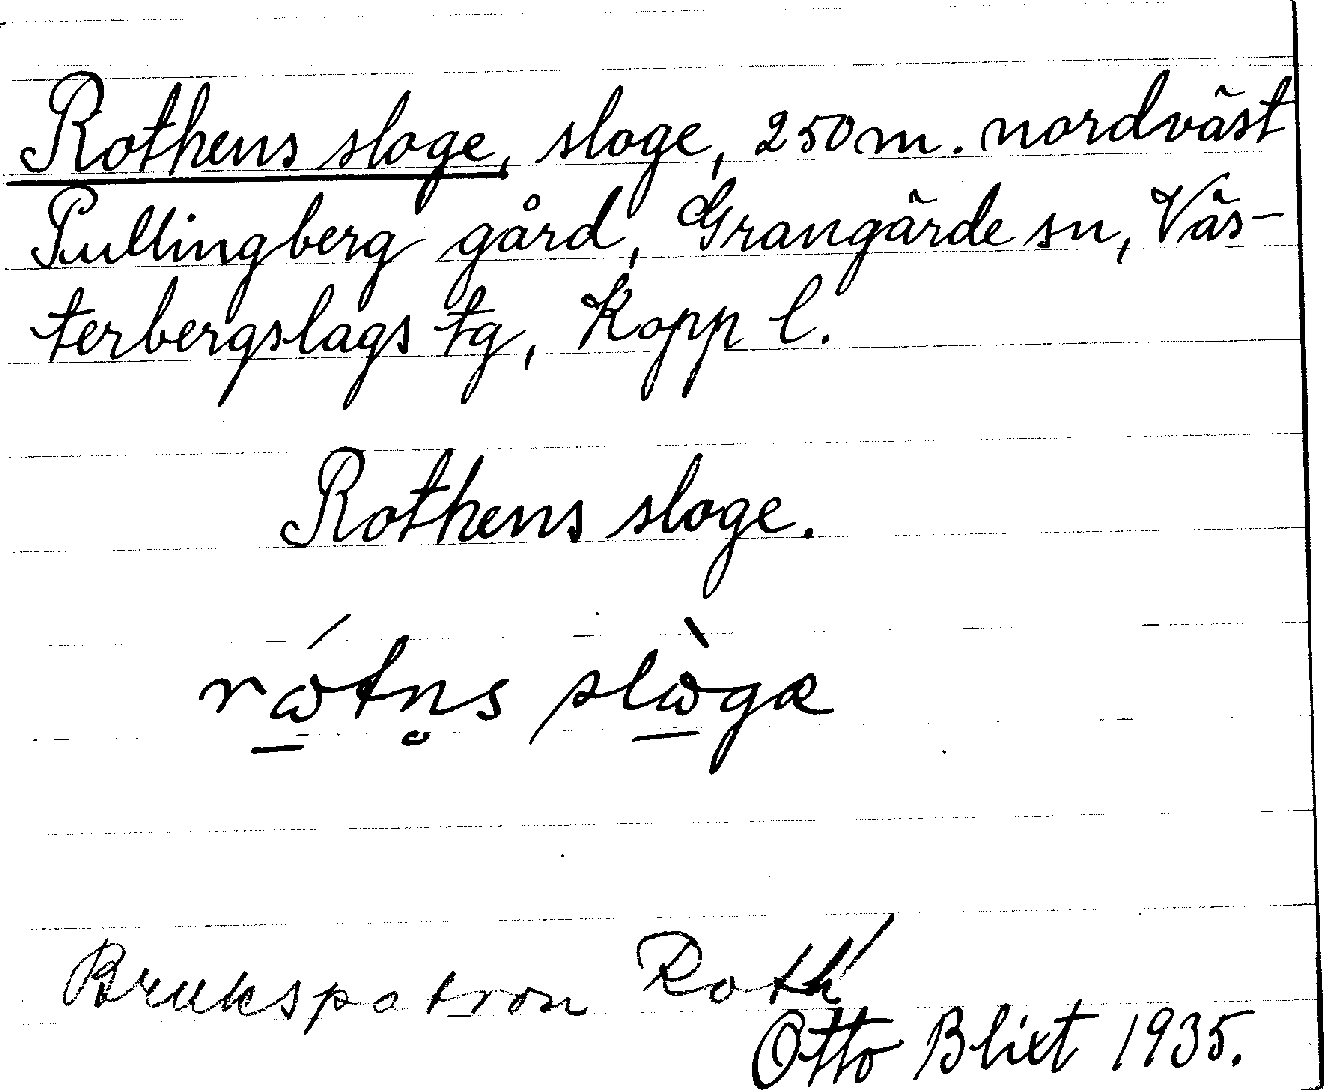 Rothens sloge, sloge, 250 m. nordväst
Pullingberg gård, Grangärde sn, Väs-
terbergslags tg, Kopp l.
Rothens sloge.
Brukspatron Roth
Otto Blixt 1935.